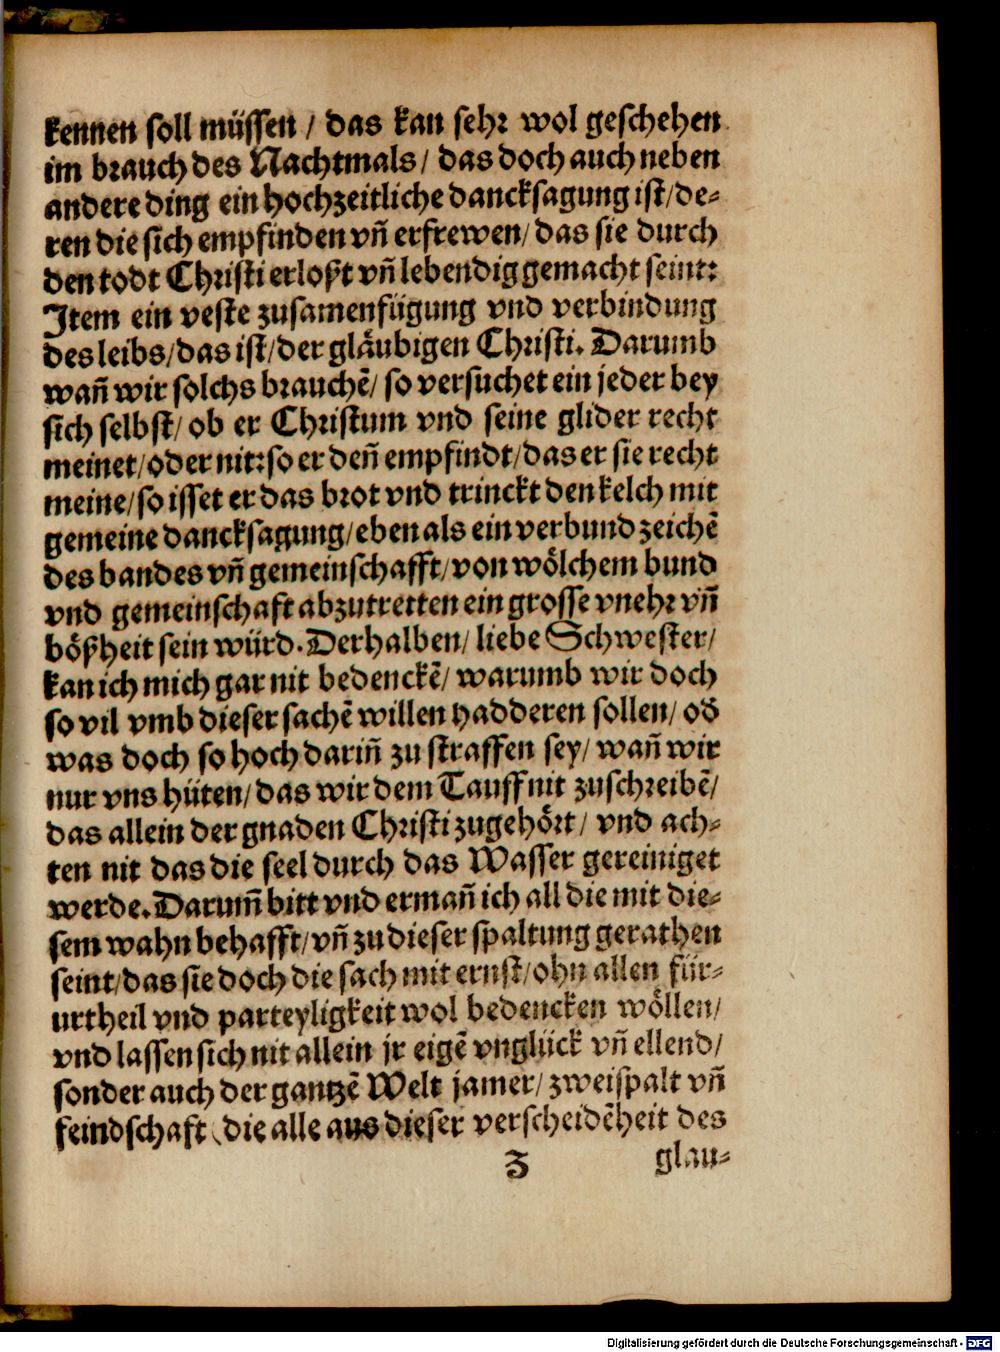 kennen soll müssen / das kan sehr wol geschehen
im brauch des Nachtmals / das doch auch neben
andere ding ein hochzeitliche dancksagung ist / de-
ren die sich empfinden vñ erfrewen / das sie durch
den todt Christi erloßt vñ lebendig gemacht seint:
Item ein veste zusamenfügung vnd verbindung
des leibs / das ist / der gläubigen Christi. Darumb
wañ wir solchs brauchē / so versuchet ein jeder bey
sich selbst / ob er Christum vnd seine glider recht
meinet / oder nit: so er deñ empfindt / das er sie recht
meine / so isset er das brot vnd trinckt den kelch mit
gemeine dancksagung / eben als ein verbund zeichē
des bandes vñ gemeinschafft / von wölchem bund
vnd gemeinschaft abzutretten ein grosse vnehr vñ
bößheit sein würd. Derhalben / liebe Schwester /
kan ich mich gar nit bedenckē / warumb wir doch
so vil vmb dieser sachē willen hadderen sollen / od̄
was doch so hoch dariñ zu straffen sey / wañ wir
nur vns hüten / das wir dem Tauff nit zuschreibē /
das allein der gnaden Christi zugehört / vnd ach-
ten nit das die seel durch das Wasser gereiniget
werde. Darum̄ bitt vnd ermañ ich all die mit die-
sem wahn behafft / vñ zu dieser spaltung gerathen
seint / das sie doch die sach mit ernst / ohn allen für-
urtheil vnd parteyligkeit wol bedencken wöllen /
vnd lassen sich nit allein jr eigē vnglück vñ ellend /
sonder auch der gantzē Welt jamer / zweispalt vñ
feindschaft (die alle aus dieser verscheidēheit des
Z glau-
Digitalisierung gefördert durch die Deutsche Forschungsgemeinschaft - DFG